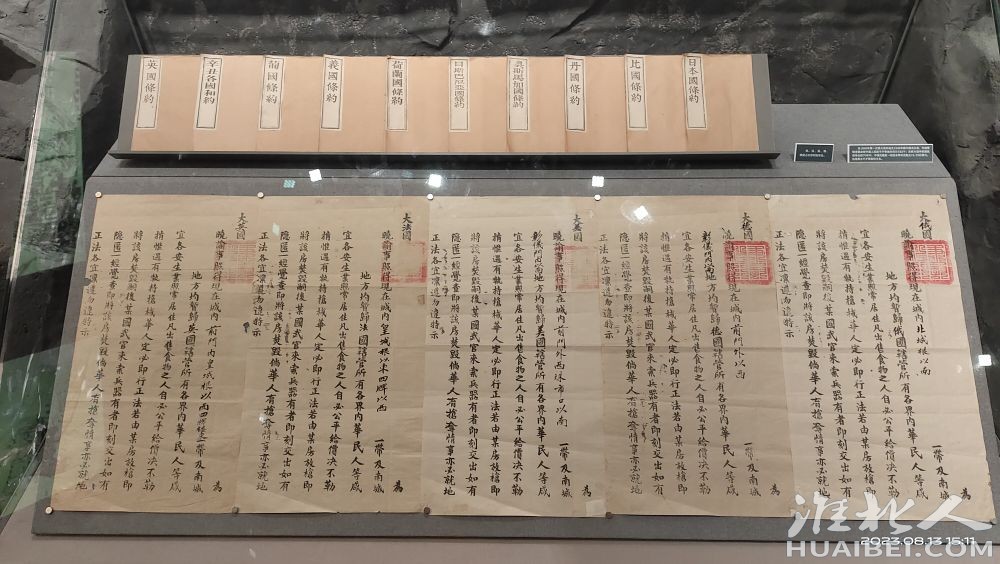 日本國條約
比國條約
丹國條約
奧斯馬加國條約
日斯巴尼亞國條約
荷蘭國條約
義國條約
葡國條約
辛丑各國和約
英國條約
大俄國 為
曉諭事照得現在城內北城根以南 一帶及南城
地方均暫歸俄國轄管所有各界內華民人等咸
宜各安生業照常居住凡出售食物之人自必公平給價決不勒
掯惟遇有執持搶械華人定必即行正法若由某房放搶即
將該房焚毀嗣後某國武官來索兵器有者即刻交出如有
隱匿一經覺查即將該房焚毀倘華人有搶奪情事亦必就地
正法各宜凜遵勿違特示
大德國 為
曉諭事照得現在城內前門外以西 一帶及南城
彰儀門內南地方均暫歸德國轄管所有各界內華民人等咸
宜各安生業照常居住凡出售食物之人自必公平給價決不勒
掯惟遇有執持搶械華人定必即行正法若由某房放搶即
將該房焚毀嗣後某國武官來索兵器有者即刻交出如有
隱匿一經覺查即將該房焚毀倘華人有搶奪情事亦必就地
正法各宜凜遵勿違特示
大美國 為
曉諭事照得現在城內前門外西珠市口以南 一帶及南城
彰儀門內南地方均暫歸美國轄管所有各界內華民人等咸
宜各安生業照常居住凡出售食物之人自必公平給價決不勒
掯惟遇有執持搶械華人定必即行正法若由某房放搶即
將該房焚毀嗣後某國武官來索兵器有者即刻交出如有
隱匿一經覺查即將該房焚毀倘華人有搶奪情事亦必就地
正法各宜凜遵勿違特示
大法國 為
曉諭事照得現在城內皇城根以末四牌以西 一帶及南城
地方均暫歸法國轄管所有各界內華民人等咸
宜各安生業照常居住凡出售食物之人自必公平給價決不勒
掯惟遇有執持搶械華人定必即行正法若由某房放搶即
將該房焚毀嗣後某國武官來索兵器有者即刻交出如有
隱匿一經覺查即將該房焚毀倘華人有搶奪情事亦必就地
正法各宜凜遵勿違特示
大英國 為
曉諭事照得現在城內前門內皇城根以西 一帶及南城
地方均暫歸英國轄管所有各界內華民人等咸
宜各安生業照常居住凡出售食物之人自必公平給價決不勒
掯惟遇有執持搶械華人定必即行正法若由某房放搶即
將該房焚毀嗣後某國武官來索兵器有者即刻交出如有
隱匿一經覺查即將該房焚毀倘華人有搶奪情事亦必就地
正法各宜凜遵勿違特示
淮北人
2023.08.13 15:11
HUAIBEI.COM